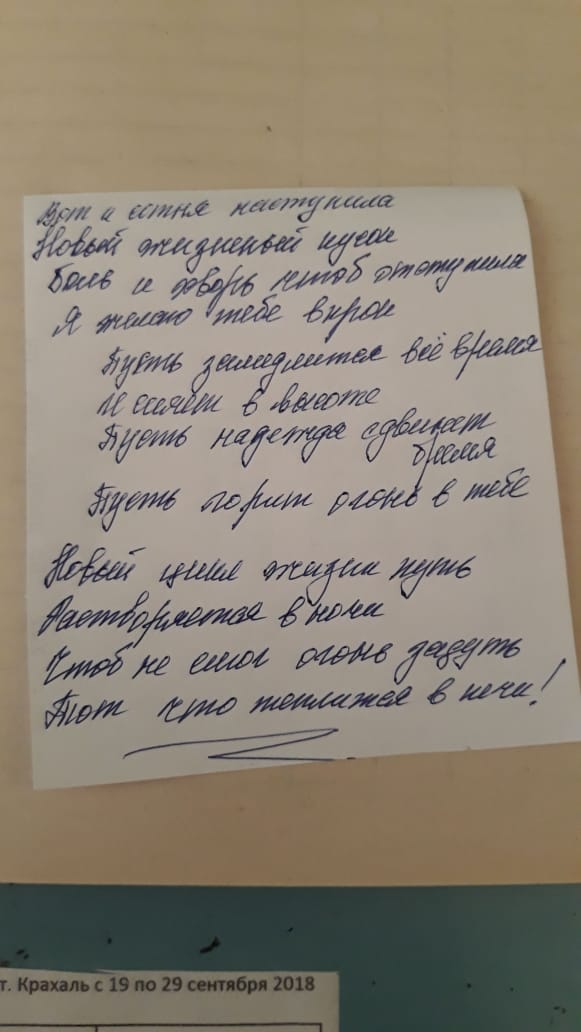 Вот и осень наступила
Новый жизненный кусок
Боль и хворь чтоб отступила
Я желаю тебе впрок
Пусть замедлится всё время
И сияет в высоте
Пусть надежда сдвигает
бремя
Пусть горит огонь в тебе
Новый цикл жизни путь
Растворяется в ночи
Чтоб не смог огонь задуть
Тот что теплится в печи!
т. Крахаль с 19 по 29 сентября 2018